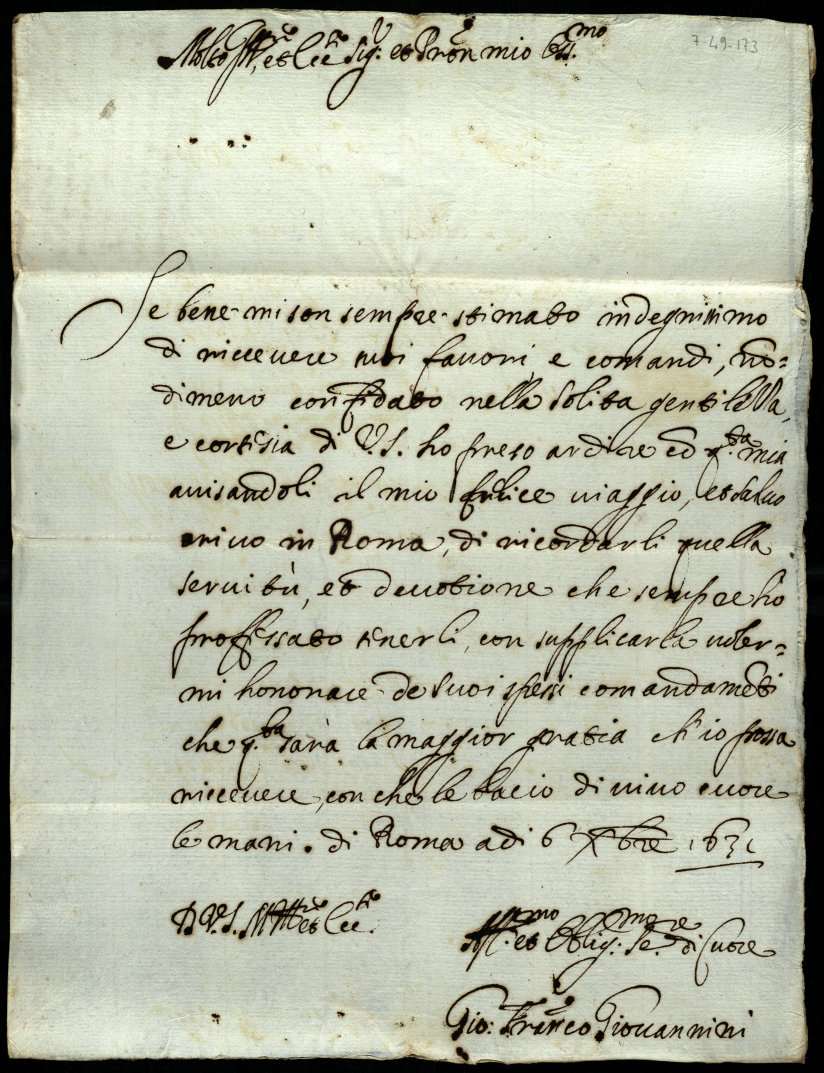 7-49-173
Molto Ill.re et Ecc.te Sig.r et Pron mio Oss.mo
Se bene mi son sempre stimato indegnissimo
di riccevere suoi favori, e comandi, nō=
dimeno confidato nella solita gentilezza,
e cortesia di V.S. ho preso ardire cō q.ta mia
avisandoli il mio felice viaggio, et salvo
arivo in Roma, di ricordarli quella
servitù, et devotione che sempre hò
proffessato tenerli, con supplicarla voler=
mi honorare de suoi spessi comandamēti
che q.ta sarà la maggior gratia ch'io possa
riccevere, con che le bacio di vivo cuore
le mani. di Roma adi 6 Xbre 1631
D V.S. M Ill.re et Ecc.te
Aff.mo et Oblig.mo Se.re di Cuore
Gio: Franco Giovannini